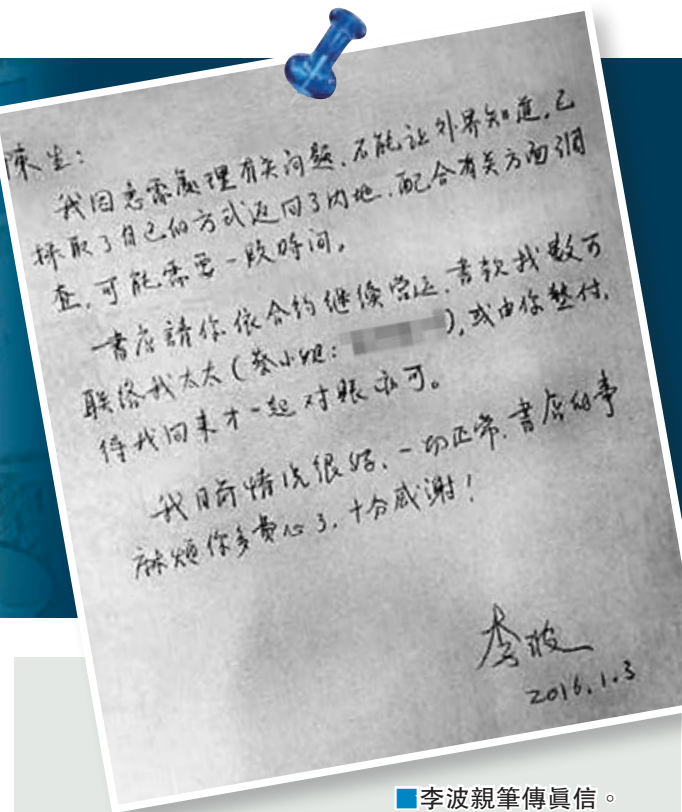 陳生:
我因急需處理有关问题,不能让外界知道,已
採取了自己的方式返回了内地,配合有关方面調
查,可能需要一段時间。
書店請你依合约继续营运,書款找數可
联络我太太(蔡小姐:),或由你垫付,
待我回来才一起对賬亦可。
我目前情况很好,一切正常,書店的事
麻煩你多费心了,十分感謝!
李波
2016.1.3
■李波親筆傳眞信。